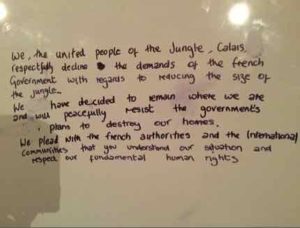 We, the united people of the Jungle, Calais,
respectfully decline the demands of the french
Government with regards to reducing the size of
the jungle.
We have decided to remain where we are
and will peacefully resist the government's
plans to destroy our homes.
We plead with the french authorities and the International
communities that you understand our situation and
respect our fundamental human rights